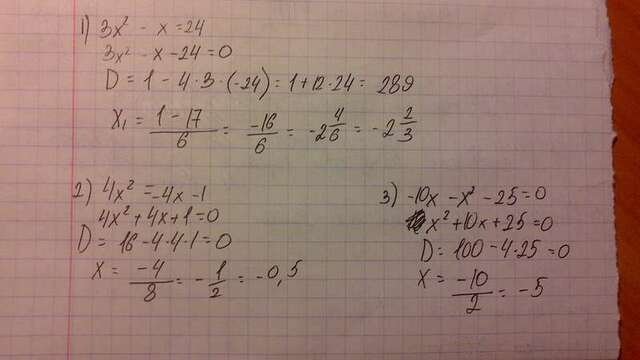 1) 3x² - x = 24
3x² - x - 24 = 0
D = 1 - 4·3·(-24) = 1 + 12·24 = 289
X₁ = (1 - 17)/6 = -16/6 = -2 4/6 = -2 2/3
2) 4x² = -4x - 1
4x² + 4x + 1 = 0
D = 16 - 4·4·1 = 0
X = -4/8 = -1/2 = -0,5
3) -10x - x² - 25 = 0
x² + 10x + 25 = 0
D = 100 - 4·25 = 0
X = -10/2 = -5